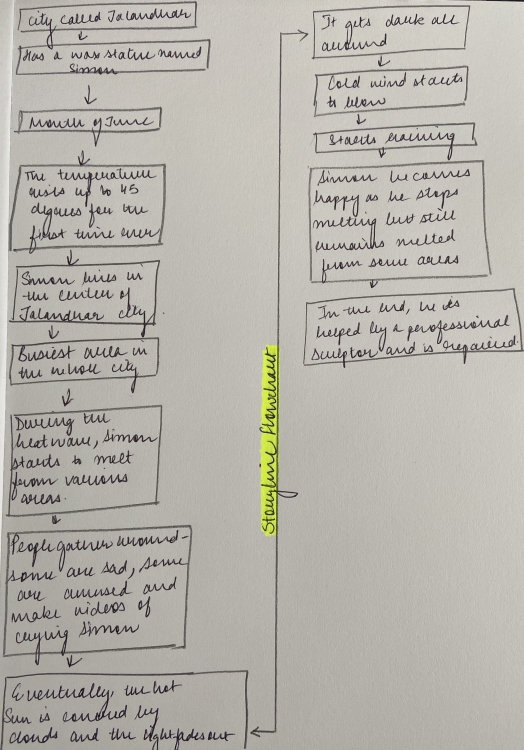 City called Jalandhar
Has a wax statue named
Simon
Month of June
The temperature
rises up to 45
degrees for the
first time ever
Simon lives in
the center of
Jalandhar city.
Busiest area in
the whole city
During the
heatwave, Simon
starts to melt
from various
areas.
People gather around-
some are sad, some
are amused and
make videos of
crying Simon
Eventually, the hot
Sun is covered by
clouds and the light fades out
Storyline flowchart
It gets dark all
around
Cold wind starts
to blow
Starts raining
Simon becomes
happy as he stops
melting but still
remains melted
from some areas
In the end, he is
helped by a professional
sculptor and is repaired.